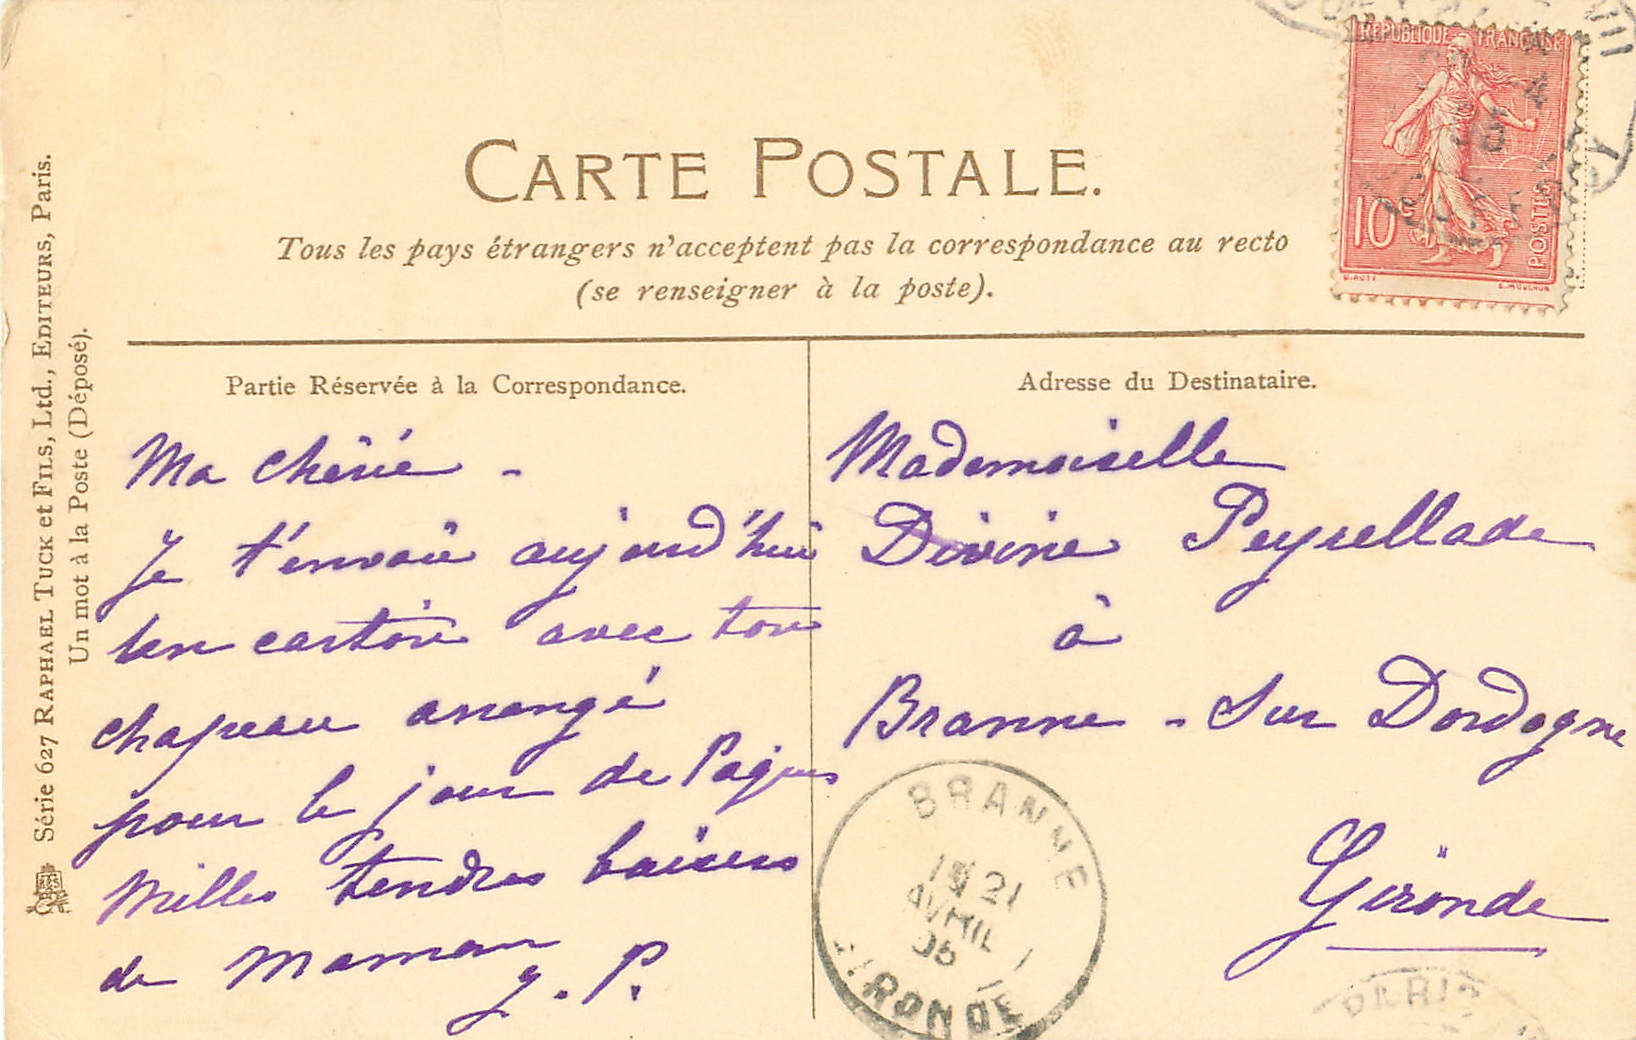 CARTE POSTALE.
Tous les pays étrangers n'acceptent pas la correspondance au recto
(se renseigner à la poste).
REPUBLIQUE FRANÇAISE
10c
POSTES
O. ROTY
E. MOUCHON
Série 627 RAPHAEL TUCK et FILS, Ltd., EDITEURS, Paris.
Un mot à la Poste (Déposé).
Partie Réservée à la Correspondance.
Ma chérie -
Je t'envoie aujourd'hui
un carton avec ton
chapeau arrangé
pour le jour de Pâques
Milles tendres baisers
de Maman
y. P.
Adresse du Destinataire.
Mademoiselle
Divine Peyrellade
à
Branne - Sur Dordogne
Gironde
BRANNE
21
AVRIL
GIRONDE
PARIS